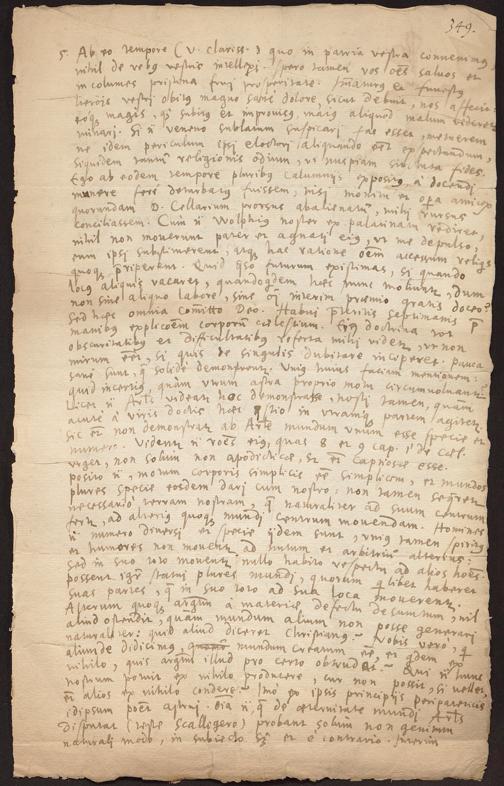 349.
5. Ab eo tempore (v. clariss.) quo in patria vestra convenimus
nihil de rebus vestris intellexi. spero tamen vos oes salvos et
incolumes pristina frui prosperitate. et funestus
herois vestri obitus magno satis dolore sicut debuit, nos affecit
eoque magis, quo subitus et improvisus, maius aliquod malum videretur
minari. Si n. veneno sublatum suspicari fas esset, metuerem
ne idem periculum ipsi electori aliquando esset expectandum,
siquidem tantum religionis odium, ut nuspiam sit tuta fides.
Ego ab eodem tempore pluribus calumniis expositus, a docendi
munere fere deturbatus fuissem, nisi et opa amicor
quorundam D. Cellarium prorsus abalienatum, mihi rursus
conciliassem. Cum n. Wolphius noster ex palatinatu rediret,
nihil non moverunt pater et agnati eius, ut me depulso,
eum ipsi substituerent, atque hac ratione oem accessum religs
quoque praeriperent. Quid quaeso futurum existimas, si quando
locus aliquis vacaret, quandoquidem haec nunc moliuntur, dum
non sine aliquo labore, sine omni interim praemio gratis doceo?
Sed haec omnia comitto Deo. Habui septimanis
manibus explicoem corporum coelestium. Eius doctrina tot
obscuritatibus et difficultatibus referta mihi videtur, ut non
mirum esset, si quis de singulis dubitare inciperet. pauca
sane sunt, quae solide demonstrentur. Unius huius faciam mentionem:
quid incertius, quam utrum astra proprio motu circumvolvantur.
Licet n. Arist. videatur hoc demonstrasse, nosti tamen, quam
acute a viris doctis haec quaestio in utramque partem agitetur.
sic et non demonstratur ab Arist. mundum unum esse specie et
numero. Videntur n. roes eius, quas 8 et 9 cap. 1 de coel.
urget, non solum non apodicticae, sed et captiosae esse.
posito n. motum corporis simplicis esse simplicem, et mundos
plures specie eosdem dari cum nostro, non tamen sequeretur
necessario terram nostram, quae naturaliter ad suum centrum
fertur, ad alterius quoque mundi centrum movendam. Homines
n. numero diversi et specie iidem sunt, unius tamen spiritus
et humores non moventur ad nutum et arbitrium alterius:
sed in suo toto moventur nullo habito respectu ad alios hoes.
possent igitur statui plures mundi, quorum quilibet haberet
suas partes, quae in suo toto ad sua loca moverentur.
Alterum quoque argum. a materiae defectu desumtum, nil
aliud ostendit, quam mundum alium non posse generari
naturaliter: quid aliud diceret Christianus? Nobis vero, qui
aliunde didicimus, mundum creatum esse, et quidem ex
nihilo, quis argum. illud pro certo obtrudat? Qui n. hunc
nostrum potuit ex nihilo producere, cur non possit, si vellet,
et alios ex nihilo condere? Imo ex ipsis principiis peripateticis
idipsum potest astrui. oia n. quae de aeternitate mundi Arist.
disputat (teste Scaligero) probant solum non genitum
naturali modo, in subiecto et e contrario. Interim